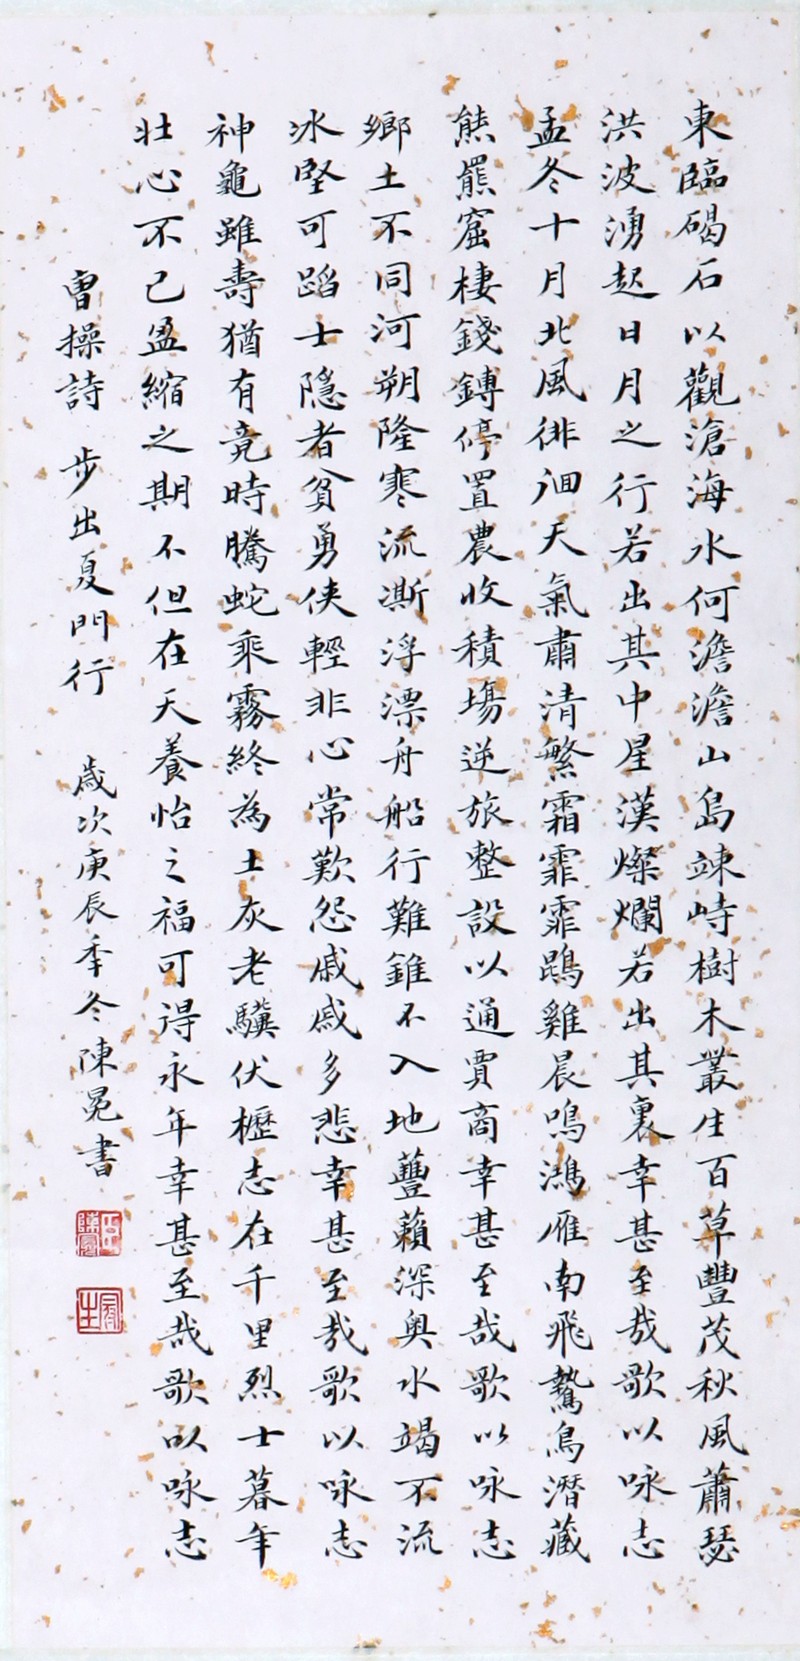 東臨碣石以觀滄海水何澹澹山島竦峙樹木叢生百草豐茂秋風蕭瑟
洪波湧起日月之行若出其中星漢燦爛若出其裏幸甚至哉歌以咏志
孟冬十月北風徘徊天氣肅清繁霜霏霏鵾雞晨鳴鴻雁南飛鷙鳥潛藏
熊羆窟棲錢鎛停置農收積場逆旅整設以通賈商幸甚至哉歌以咏志
鄉土不同河朔隆寒流澌浮漂舟船行難錐不入地蘴藾深奥水竭不流
冰堅可蹈士隱者貧勇俠輕非心常歎怨戚戚多悲幸甚至哉歌以咏志
神龜雖壽猶有竟時騰蛇乘霧終為土灰老驥伏櫪志在千里烈士暮年
壯心不已盈縮之期不但在天養怡之福可得永年幸甚至哉歌以咏志
曹操詩 步出夏門行 歲次庚辰季冬陳冕書